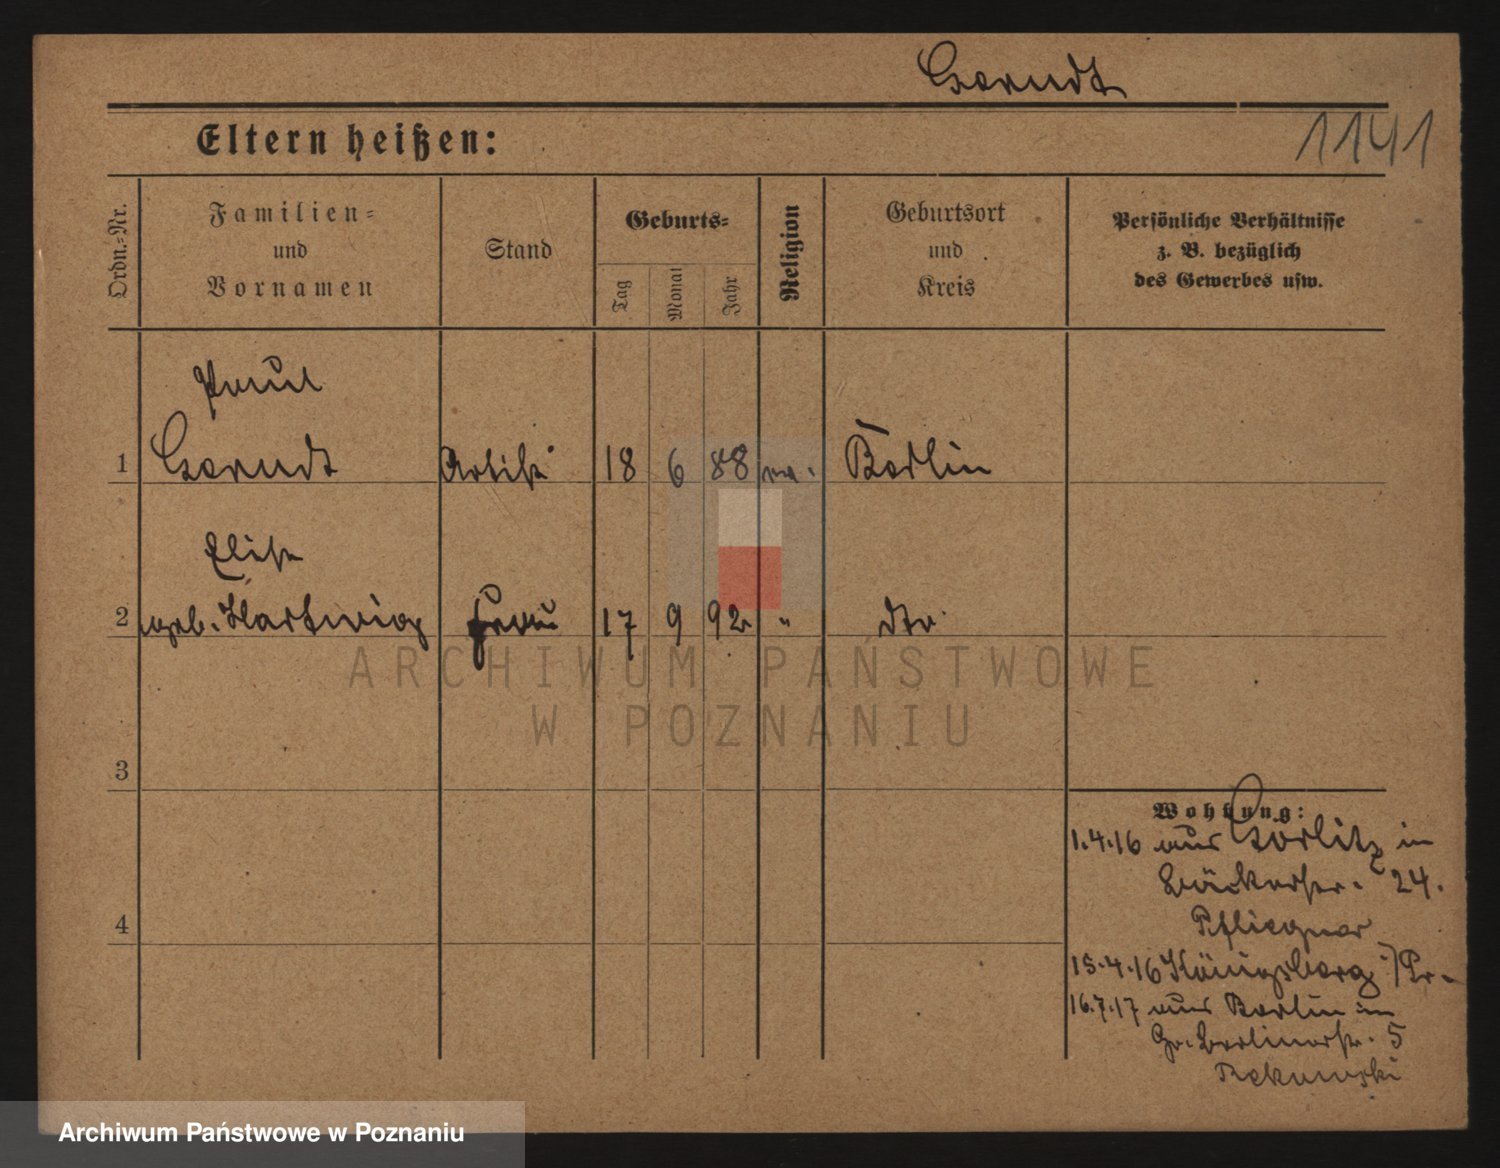 Gerndt
1141
Eltern heißen:
Ordn.-Nr.
Familien-
und
Vornamen
Stand
Geburts-
Tag
Monat
Jahr
Religion
Geburtsort
und
Kreis
Persönliche Verhältnisse
z. B. bezüglich
des Gewerbes usw.
Paul
1 Gerndt Artist 18 6 88 ev. Berlin
Elise
2 geb. Hartwig Frau 17 9 92 " dto.
ARCHIWUM PAŃSTWOWE
W POZNANIU
3
Wohnung:
1.4.16 aus Görlitz in
Bäckerstr. 24.
4
15.4.16 Königsberg i/Pr.
16.7.17 aus Berlin in
Gr. Berlinerstr. 5
Archiwum Państwowe w Poznaniu